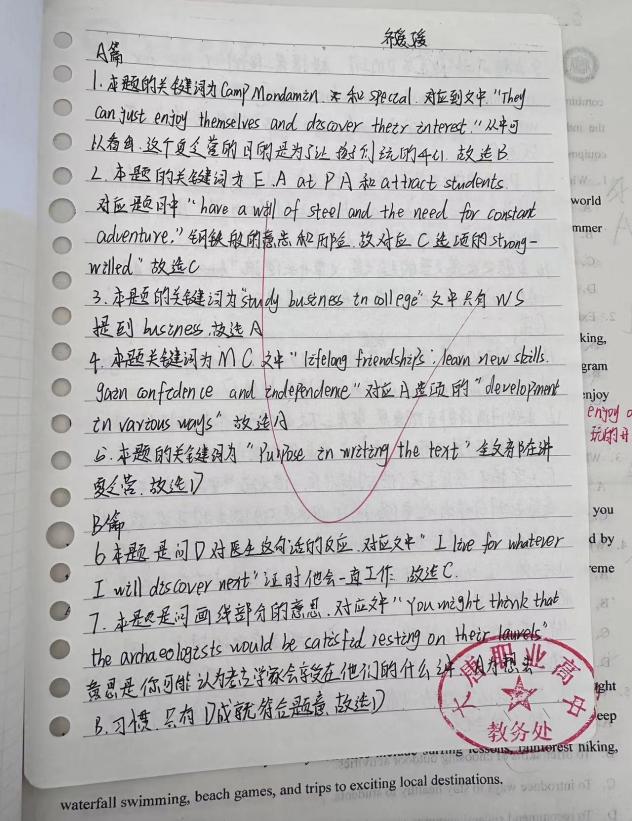 A篇
1.本题的关键词为Camp Mondamin 和special. 对应到文中 "They
can just enjoy themselves and discover their interest." 从中可
以看出,这个夏令营的目的是为了让 故选B.
2.本题的关键词为E.A at P A和attract students.
对应题词中 "have a will of steel and the need for constant
adventure." 钢铁般的意志和历险. 故对应C选项的strong-
willed" 故选C
3.本题的关键词为"study business in college" 文中只有WS
提到business.故选A
4.本题关键词为M C.文中 "lifelong friendships, learn new skills.
gain confidence and independence" 对应A选项的 "development
in various ways" 故选A
5.本题的关键词为 "Purpose in writing the text" 全文都在讲
夏令营.故选D
B篇
6本题是问D对医生这句话的反应.对应文中 "I live for whatever
I will discover next" 证明他会一直工作 故选C.
7.本题是问画线部分的意思.对应文中 "You might think that
the archaeologists would be satisfid resting on their laurels"
意思是你可能认为考古学家会享受在他们的什么
B.习惯.只有D成就符合题意.故选D
职业高中
教务处
world
mmer
king,
gram
njoy
enjoy
you
d by
reme
ght
eep
include surfing lessons, rainforest hiking,
waterfall swimming, beach games, and trips to exciting local destinations.